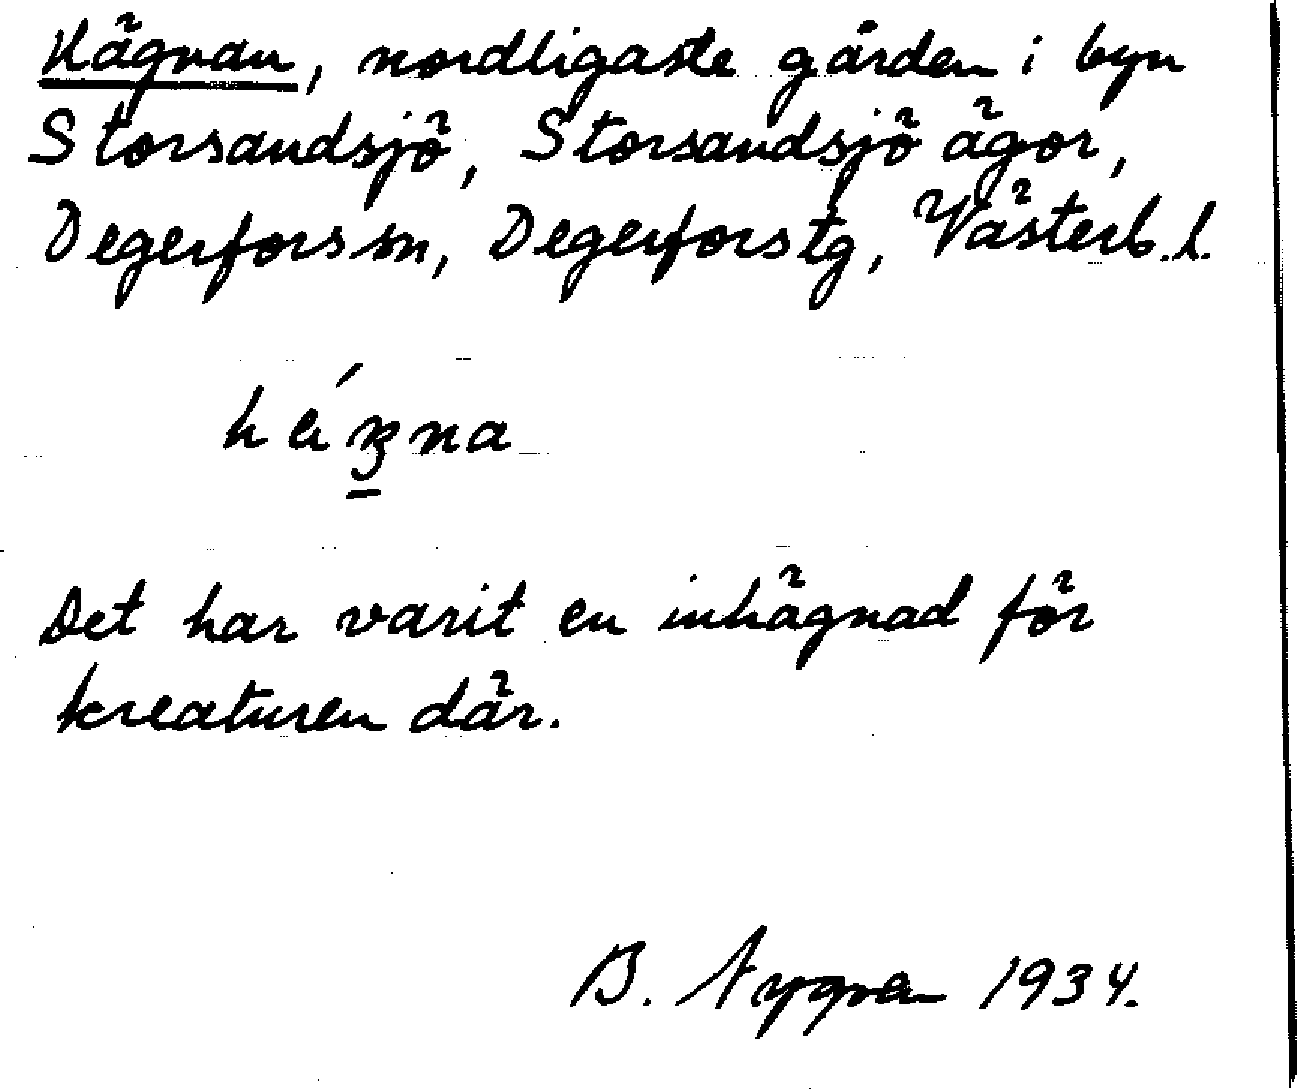 Hägnan, nordligaste gården i byn
Storsandsjö, Storsandsjö ägor,
Degerfors sn, Degerfors tg, Västerb. l.
Det har varit en inhägnad för
kreaturen där.
B. Nygren 1934.